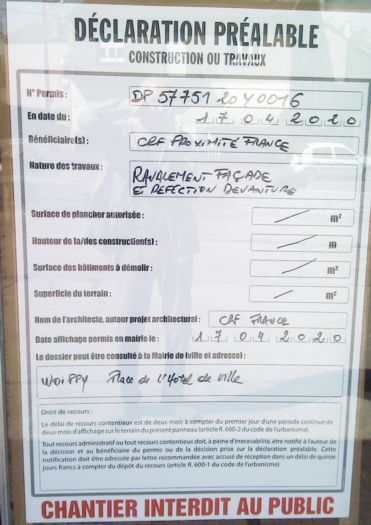 DÉCLARATION PRÉALABLE
CONSTRUCTION OU TRAVAUX
N° Permis : DP 57751 20 Y0016
En date du : 17 04 2020
Bénéficiaire(s) : CRF PROXIMITÉ FRANCE
Nature des travaux : RAVALEMENT FAÇADE
ET REFECTION DEVANTURE
Surface de plancher autorisée : / m²
Hauteur de la/des construction(s) : / m
Surface des bâtiments à démolir : / m²
Superficie du terrain : / m²
Nom de l'architecte, auteur projet architectural : CRF FRANCE
Date affichage permis en mairie le : 17 04 2020
Le dossier peut être consulté à la Mairie de (ville et adresse) :
WOIPPY Place de l'Hotel de Ville
Droit de recours :
Le délai de recours contentieux est de deux mois à compter du premier jour d'une période continue de
deux mois d'affichage sur le terrain du présent panneau (article R. 600-2 du code de l'urbanisme).
Tout recours administratif ou tout recours contentieux doit, à peine d'irrecevabilité, être notifié à l'auteur de
la décision et au bénéficiaire du permis ou de la décision prise sur la déclaration préalable. Cette
notification doit être adressée par lettre recommandée avec accusé de réception dans un délai de quinze
jours francs à compter du dépôt du recours (article R. 600-1 du code de l'urbanisme).
CHANTIER INTERDIT AU PUBLIC